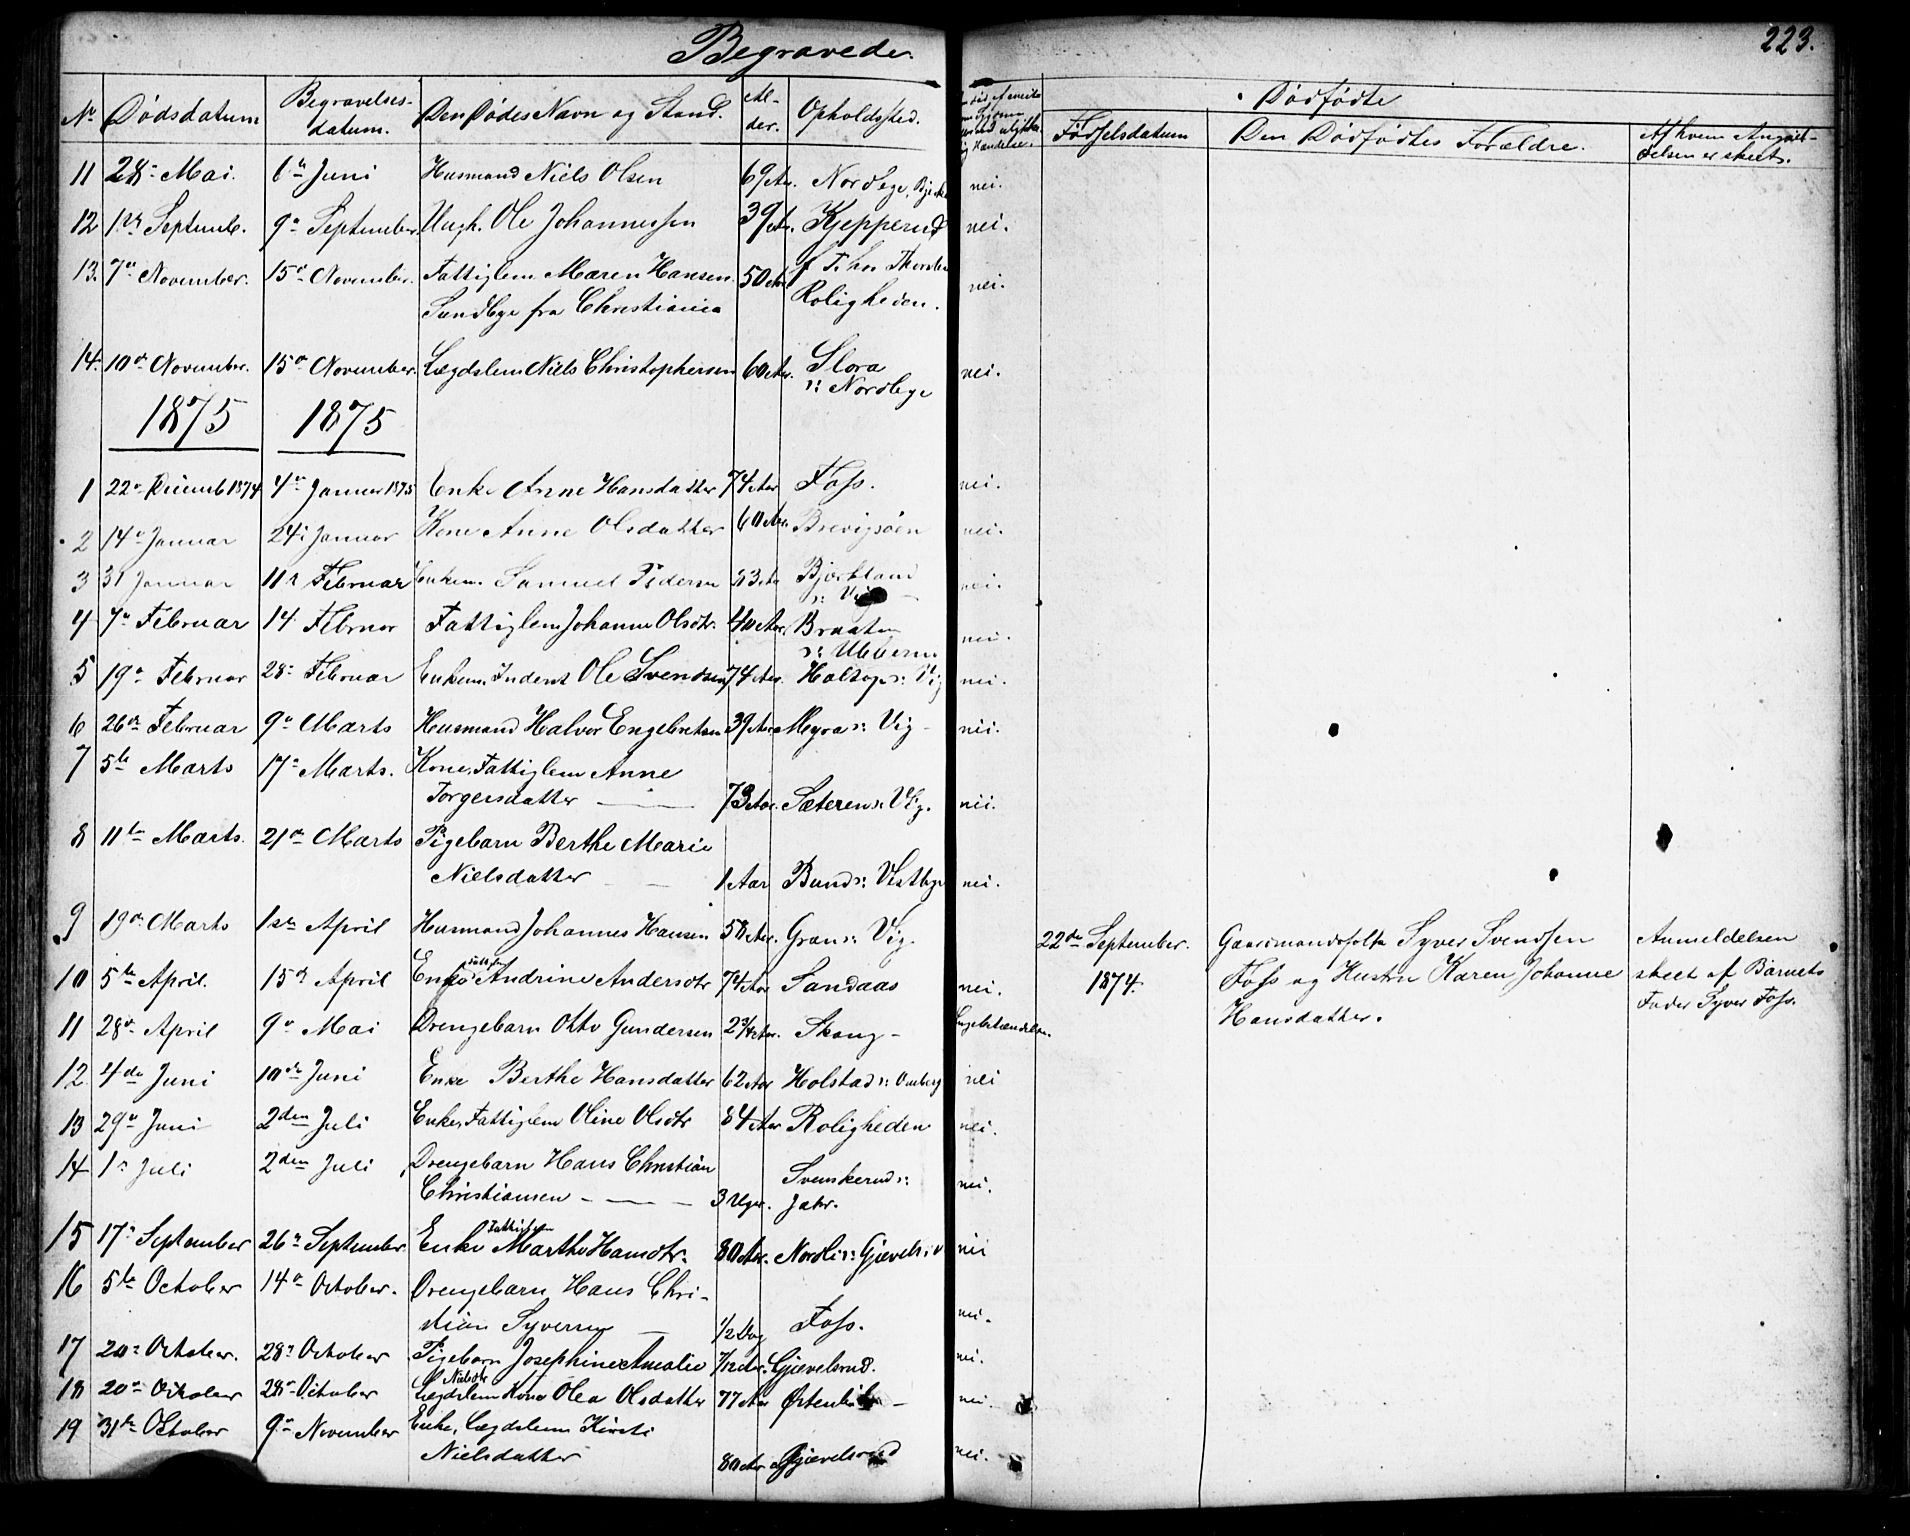 Begravede.
223.
No Dødsdatum Begravelses- datum. Den Dødes Navn og Stand. Al- der. Opholdssted.
Dødfødte
Fødselsdatum Den Dødfødtes Forældre. Af hvem Anmel- delsen er skeet.
11 28de Mai. 6te Juni Husmand Niels Olsen 69 Aar. Nordbye, nei.
12 1ste Septemb. 9de September. Ungk. Ole Johannessen 39 Aar. Kjepperud nei.
13. 7de November. 15de November. Fattiglem Maren Hansen 50 Aar nei.
Sundbye fra Christiania Roligheden.
14. 10de November. 15de November. Lægdslem Niels Christophersen 60 Aar. Slora nei.
s: Nordbye
1875 1875
1 22de Decemb 1874 4de Januar 1875 Enke Anne Hansdatter 74 Aar Foss. nei.
2 14de Januar 24de Januar Kone Anne Olsdatter 60 Aar. Brevigsøen nei.
3 31 Januar 11te Februar Enkem. Samuel Pedersen Bjørkland nei.
4 7de Februar 14 Februar Fattiglem Johanne Olsdtr. 40 Aar. Braaten nei.
5 19de Februar 28de Februar Enkem. Inderst Ole Svendsen 74 Aar. Holtop s: Vig nei.
6 26de Februar 9de Marts Husmand Halvor Engebretsen 39 Aar Myra s: Vig - nei.
7 5te Marts 17de Marts. Kone, Fattiglem Anne
Torgersdatter 73 Aar. Sæteren s: Vig. nei.
8 11te Marts. 21de Marts Pigebarn Berthe Marie
Nielsdatter 1 Aar Bund s: Vestbye nei.
9 19de Marts 1ste April Husmand Johannes Hansen 58 Aar. Gran s: Vig.
22de September. Gaardmandsfolk Syver Svendsen Anmeldelsen
10 5te April. 15de April Enke fattiglem Andrine Andersdtr 74 Aar Sandaas nei.
1874. Foss og Hustru Karen Johanne skeet af Barnets
Hansdatter. Fader Syver Foss.
11 28de April 9de Mai Drengebarn Otto Gundersen 2 3/4 Aar. Skoug - Lungebetændelse.
12 4de Juni 10de Juni Enke Berthe Hansdatter 62 Aar Holstad s: nei
13 29de Juni 2den Juli Enke, Fattiglem Oline Olsdtr 84 Aar Roligheden nei.
14 1ste Juli 2den Juli Drengebarn Hans Christian Svenskerud s:
Christiansen 3 Uger. Jahr. nei.
15 17de September 26de September. Enke Fattiglem Marthe Hansdtr. 80 Aar. Nordli s: nei
16 5te October 14de October. Drengebarn Hans Chri-
stian Syversen 1/2 Dag Foss. nei.
17 20de October. 28de October Pigebarn Josephine Amalie 7/12 Aar. Gjævelsrud. nei.
Nielsdtr
18 20de October 28de October Lægdslem Kone Olea Olsdatter 77 Aar nei.
19 31te October 9de November Enke, Lægdslem Kirsti
Nielsdatter 80 Aar Gjævelsrud nei.